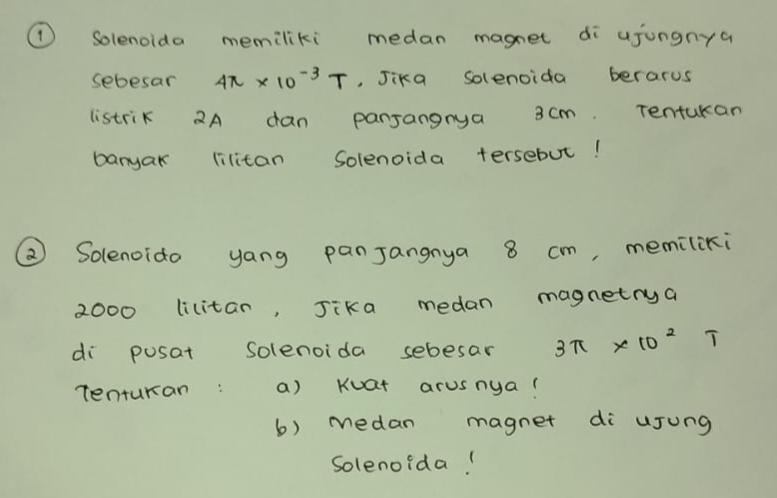 ① Solenoida memiliki medan magnet di ujungnya
sebesar 4π × 10⁻³ T. Jika Solenoida berarus
listrik 2A dan panjangnya 3 cm. Tentukan
banyak lilitan Solenoida tersebut !
② Solenoida yang panjangnya 8 cm, memiliki
2000 lilitan, Jika medan magnetnya
di pusat Solenoida sebesar 3π × 10² T
Tentukan : a) Kuat arusnya !
b) Medan magnet di ujung
Solenoida !